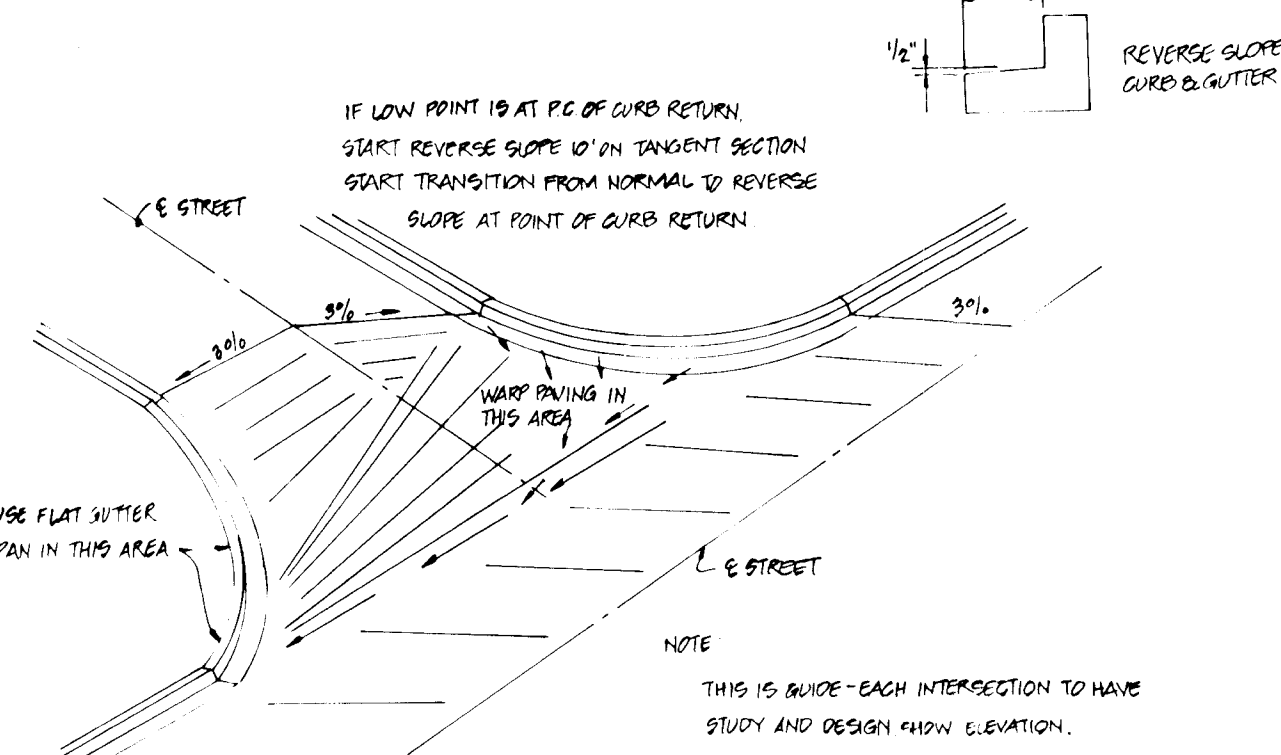 1/2"
REVERSE SLOPE
CURB & GUTTER
IF LOW POINT IS AT P.C. OF CURB RETURN,
START REVERSE SLOPE 10' ON TANGENT SECTION
START TRANSITION FROM NORMAL TO REVERSE
SLOPE AT POINT OF CURB RETURN
℄ STREET
3%
3%
3%
WARP PAVING IN
THIS AREA
USE FLAT GUTTER
PAN IN THIS AREA
℄ STREET
NOTE
THIS IS GUIDE - EACH INTERSECTION TO HAVE
STUDY AND DESIGN SHOW ELEVATION.